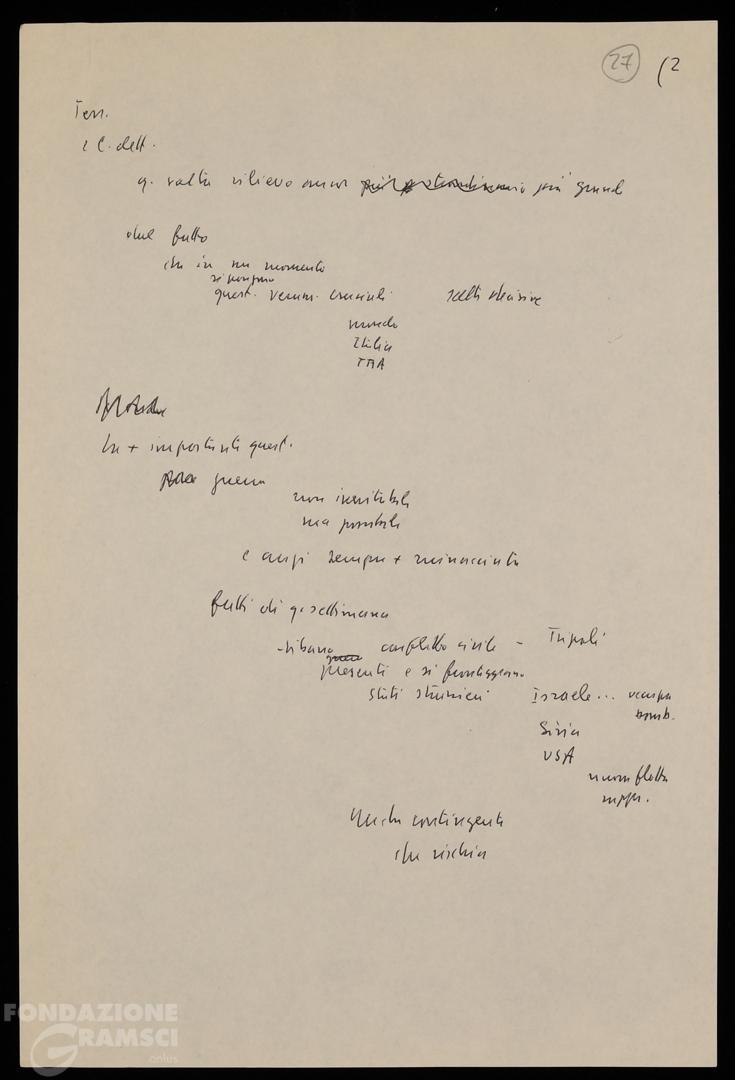 27 (2
Terr.
e C. dell.
q. volta rilievo ancor più grande
dal fatto
che in un momento
si pongono
quest. veram. cruciali scelte decisive
mondo
Italia
La + importante quest.
guerra
non inevitabile
ma possibile
e anzi sempre + minacciata
fatti di q. settimana
- Libano conflitto civile - Tripoli
presenti e si fronteggiano
stati stranieri Israele... occupa
bomb.
Siria
USA
nuova flotta
Anche contingente
che rischia
FONDAZIONE
GRAMSCI
onlus